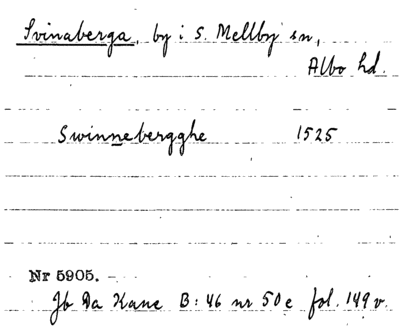 Svinaberga, by i S. Mellby sn,
Albo hd.
Swinnebergghe 1525
Nr 5905.
Jb Da Kanc B: 46 nr 50 e fol. 149 v.